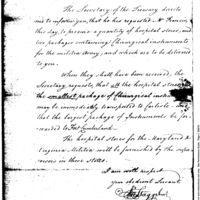 The Secretary of the Treasury directs
me to inform you, that he has requested Mr Francis
this day, to procure a quantity of hospital stores, and
two packages containing Chirurgical instruments
for the militia Army, and which are to be delivered
to you.
When they shall have been received, the
Secretary requests, that all the hospital stores, and
the smallest package of Chirurgical instruments
may be immediately transported to Carlisle. And
that the largest package of Instruments be for-
warded to Fort Cumberland.
The hospital stores for the Maryland &
Virginia Militia will be furnished by the
in those states.
I am with respect
your obedient Servant